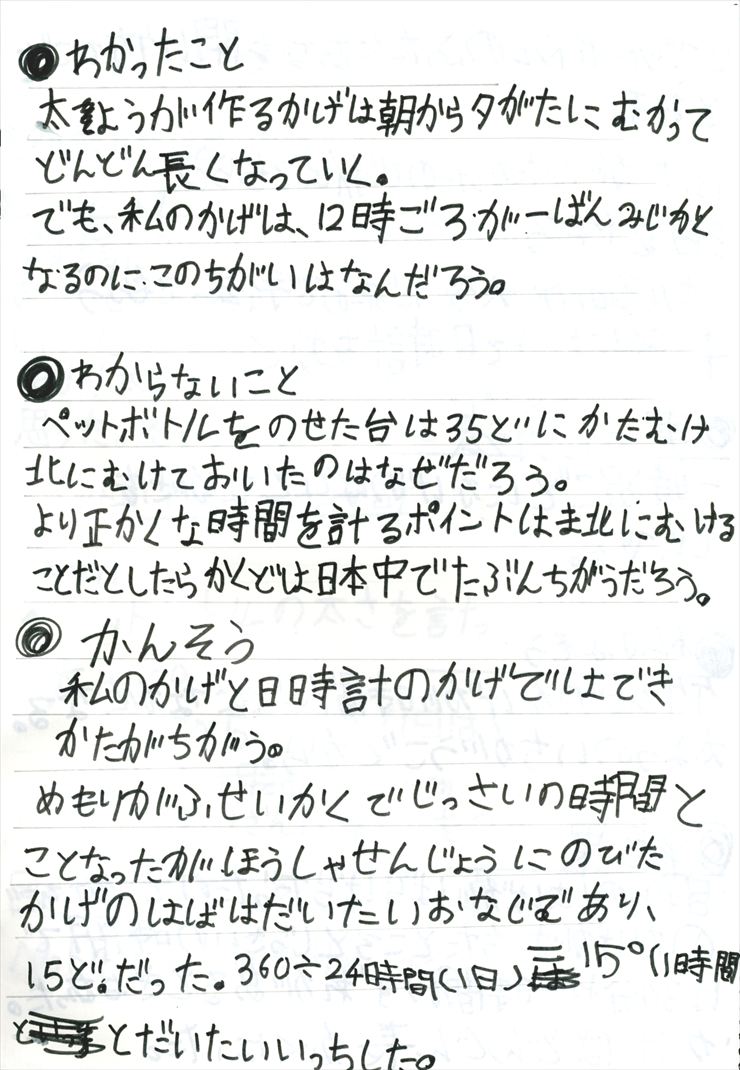 ◎わかったこと
太ようが作るかげは朝から夕がたにむかって
どんどん長くなっていく。
でも、私のかげは、12時ごろが一ばんみじかく
なるのに、このちがいはなんだろう。
◎わからないこと
ペットボトルをのせた台は35どにかたむけ
北にむけておいたのはなぜだろう。
より正かくな時間を計るポイントはま北にむける
ことだとしたらかくどは日本中でたぶんちがうだろう。
◎かんそう
私のかげと日時計のかげではでき
かたがちがう。
めもりがふせいかくでじっさいの時間と
ことなったがほうしゃせんじょうにのびた
かげのはばはだいたいおなじであり、
15ど。だった。360÷24時間(1日)=15°(1時間
とだいたいいっちした。